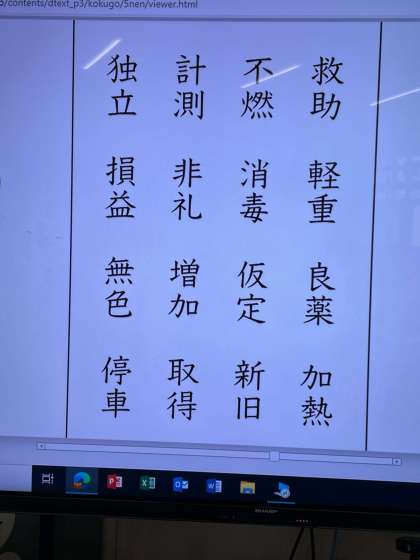 o/contents/dtext_p3/kokugo/5nen/viewer.html
救助
軽重
良薬
加熱
不燃
消毒
仮定
新旧
計測
非礼
増加
取得
独立
損益
無色
停車
SHARP